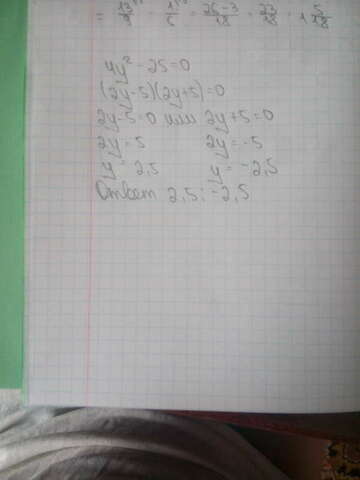 = 13/9 - 1/6 = 26-3/18 = 23/18 = 1 5/18
4y² - 25 = 0
(2y-5)(2y+5) = 0
2y-5=0 или 2y+5=0
2y = 5 2y = -5
y = 2,5 y = -2,5
Ответ 2,5; -2,5